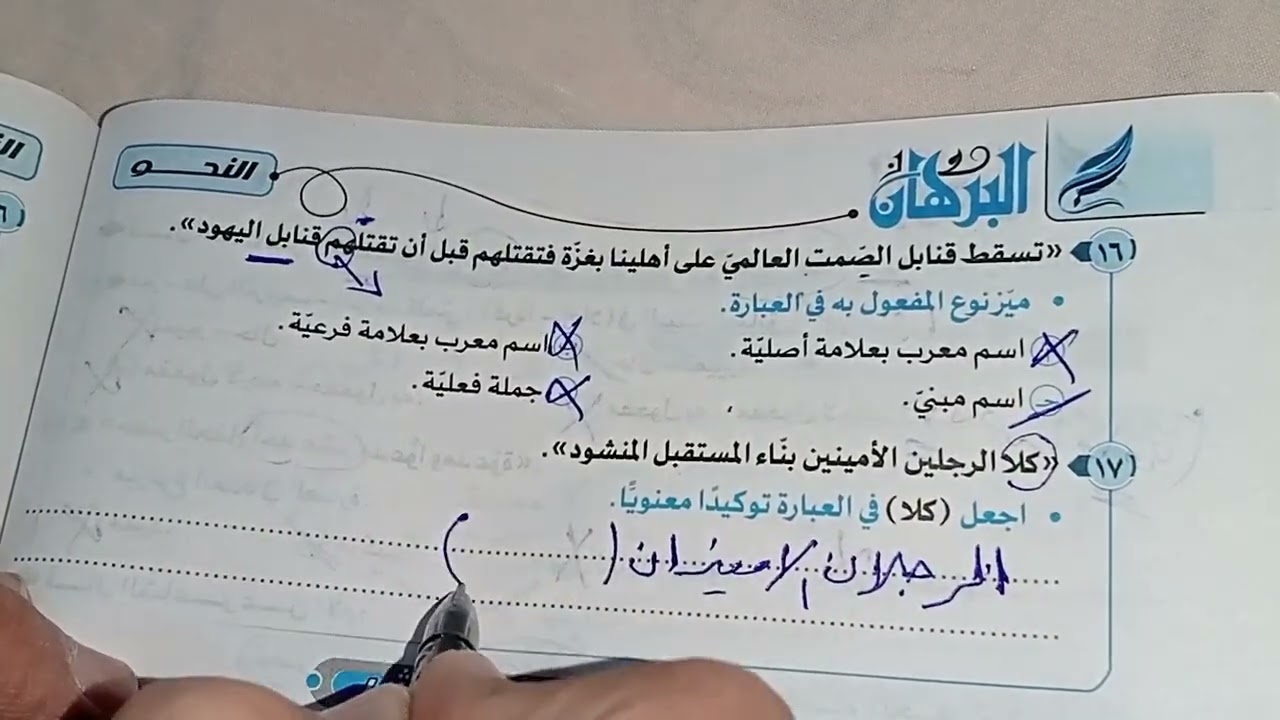 البرهان
النحـــو
١٦ «تسقط قنابل الصِّمت العالميّ على أهلينا بغزّة فتقتلهم قبل أن تقتلهم قنابل اليهود».
• ميّز نوع المفعول به في العبارة.
اسم معرب بعلامة أصليّة. اسم معرب بعلامة فرعيّة.
جـ اسم مبنيّ. جملة فعليّة.
١٧ «كلا الرجلين الأمينين بنّاء المستقبل المنشود».
• اجعل (كلا) في العبارة توكيدًا معنويًّا.
الرجلان الأمينان (